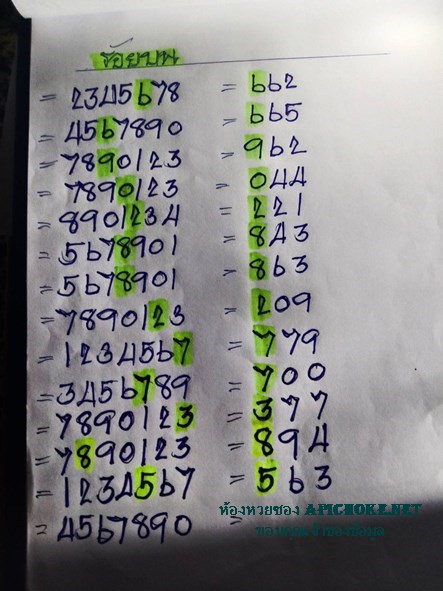 ร้อยบน
= 2345678 = 662
= 4567890 = 665
= 7890123 = 962
= 7890123 = 044
= 8901234 = 221
= 5678901 = 843
= 5678901 = 863
= 7890123 = 209
= 1234567 = 779
= 3456789 = 700
= 7890123 = 377
= 7890123 = 894
= 1234567 = 563
ห้องหวยซอง APICHOKE.NET
= 4567890 =
ขอบคุณเจ้าของข้อมูล